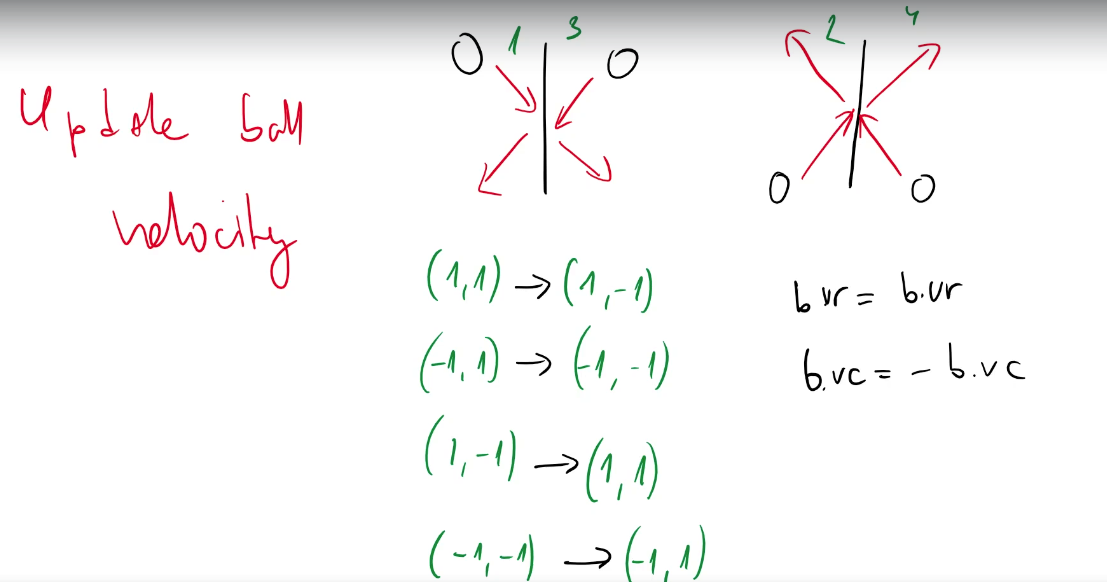 Update ball
velocity
1 3
2 4
(1,1) → (1,-1)
(-1,1) → (-1,-1)
(1,-1) → (1,1)
(-1,-1) → (-1,1)
b vr = b.vr
b.vc = - b.vc